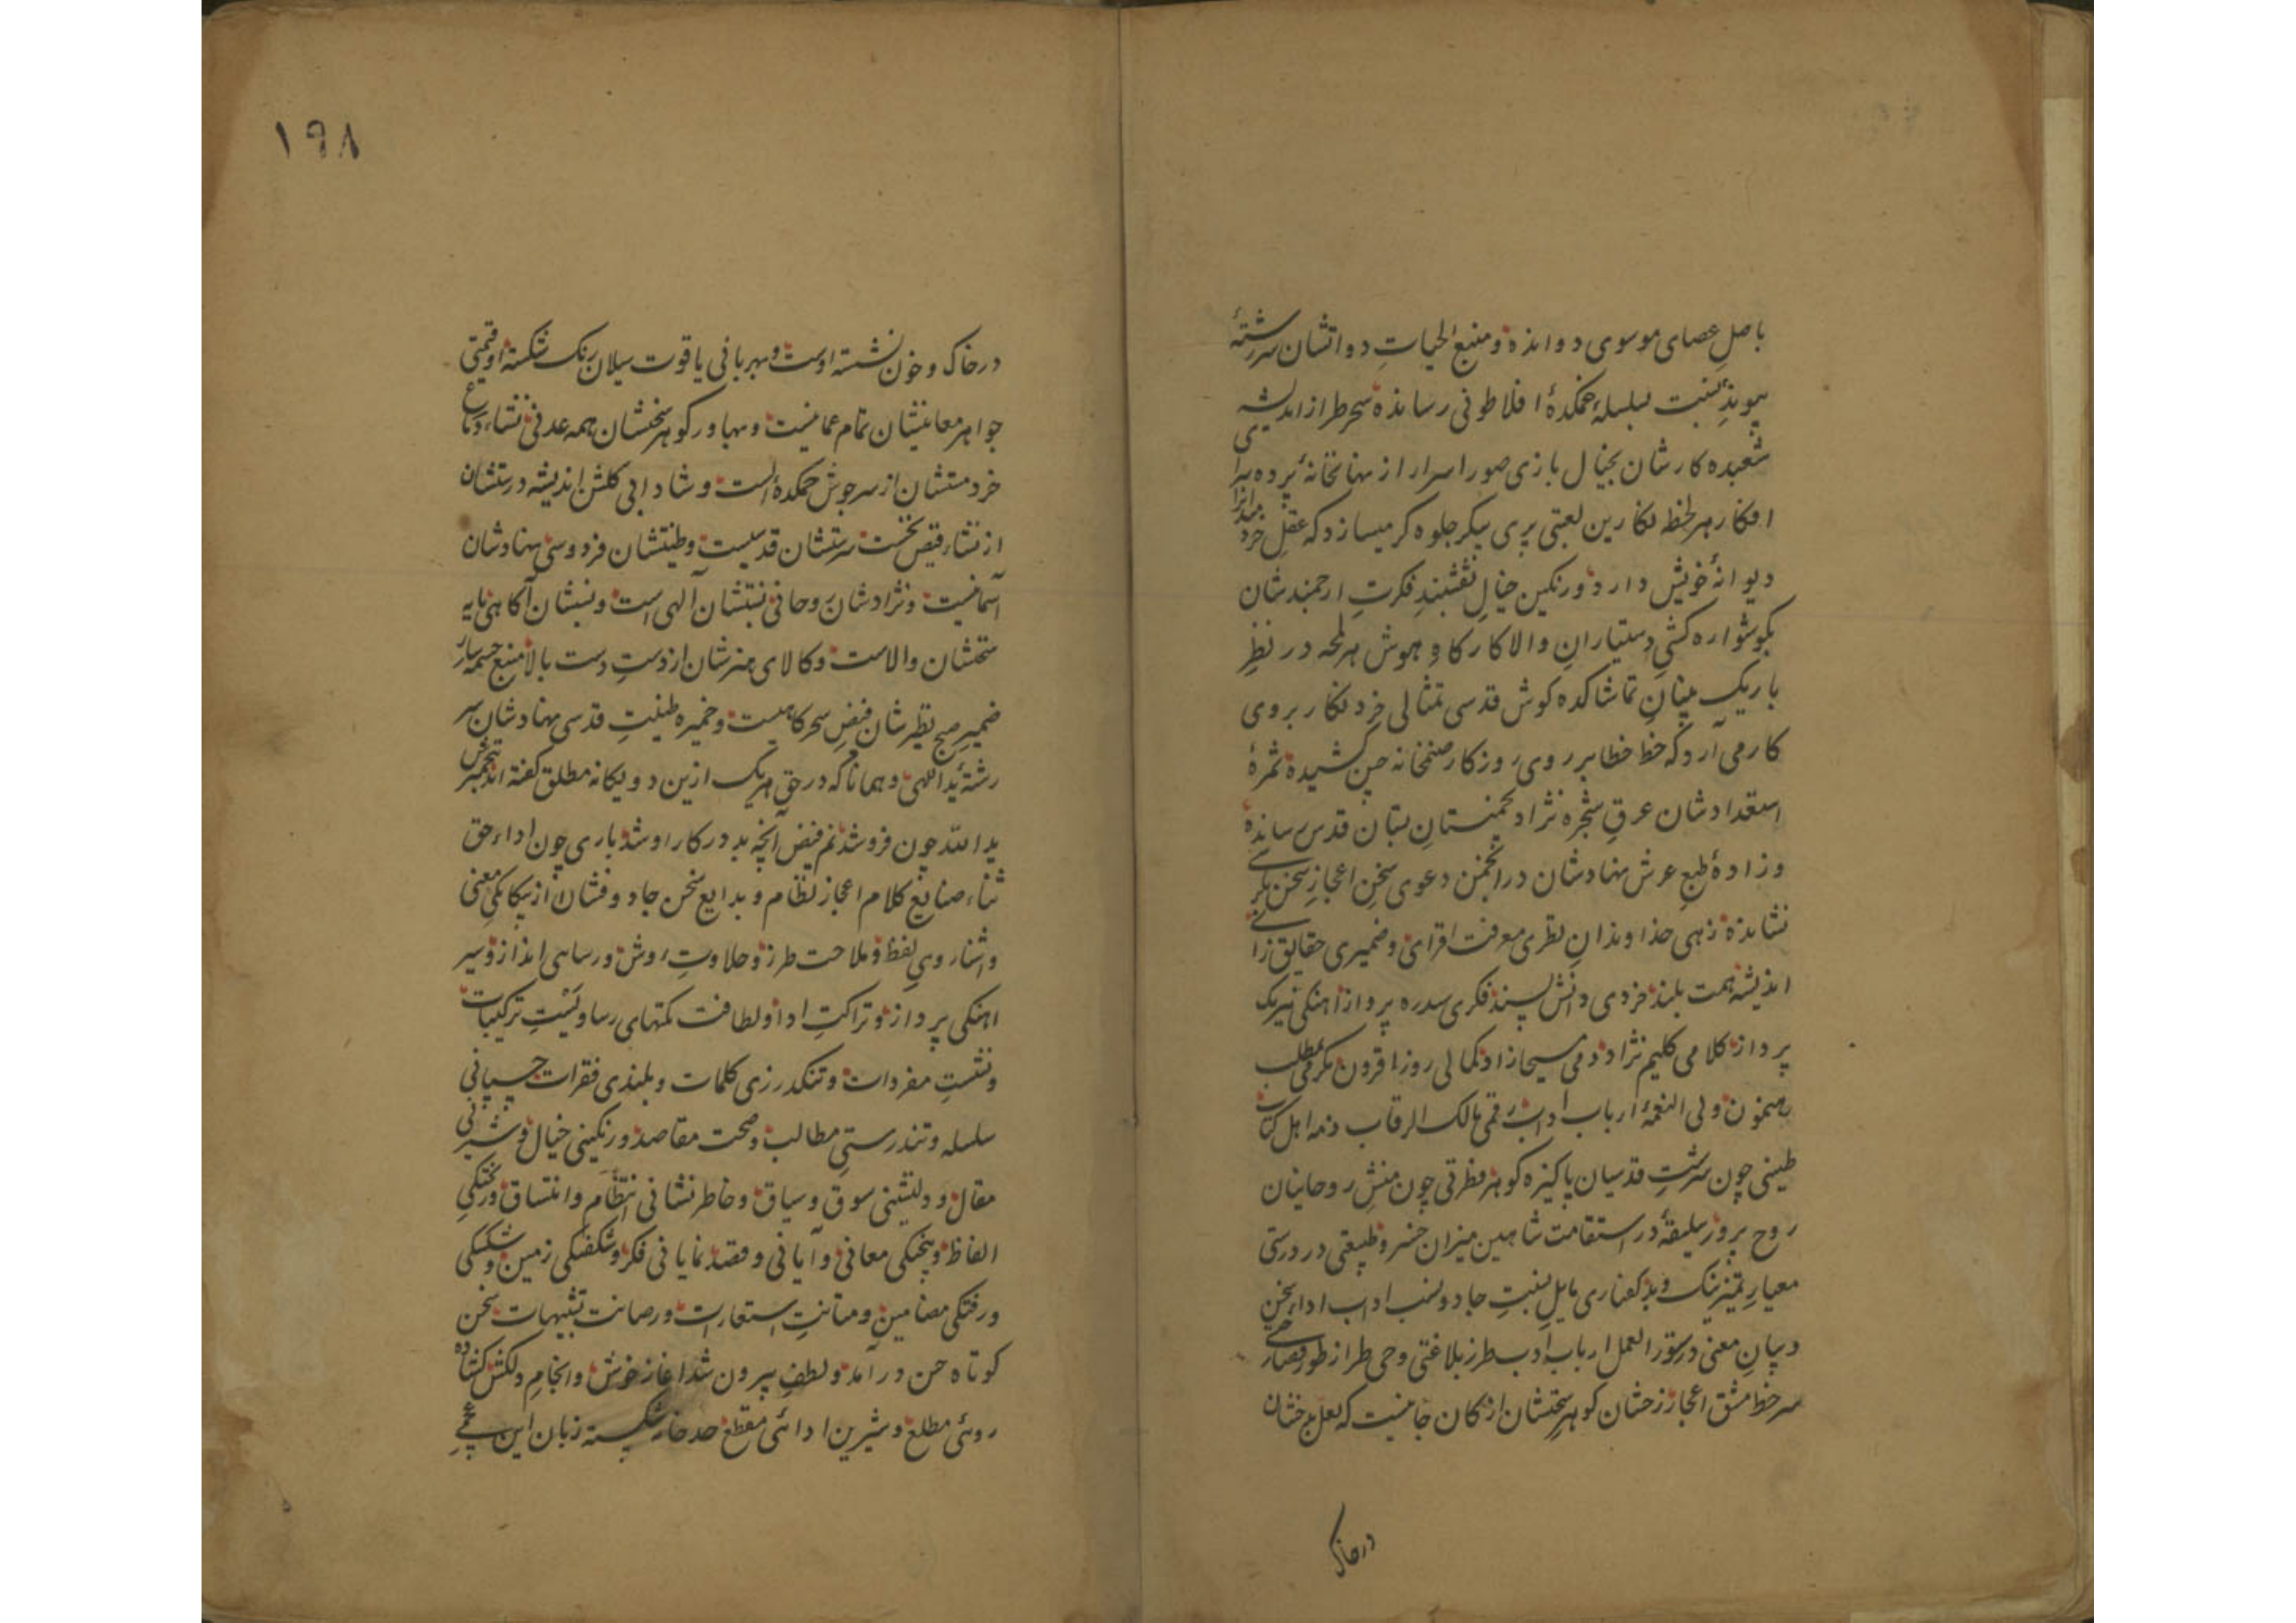 باصل عصای موسوی دوانده و منبع الحیات دواتشان سررشتهٔ
پیوند نسبت بسلسلهٔ خمکدهٔ افلاطونی رسانده سحر طراز اندیشه
شعبده کارشان بخیال بازی صور اسرار از نهانخانهٔ پرده سرا
افکار هر لحظه نکارین لعبتی پری پیکر جلوه کر میسازد که عقل خرد
دیوانهٔ خویش دارد و رنکین خیال نقشبند فکرت ارجمندشان
بکوشواره کشی دستیاران والا کارکاه هوش هر لمحه در نظر
باریک بینان تماشاکده کوش قدسی تمثالی خرد نکار بر وی
کار می آرد که خط خطا بر روی روزکار صنمخانه چین کشیده ثمرهٔ
استعدادشان عرق شجره نژاد بچمنستان بستان قدس رسانده
و زادهٔ طبع عرش نهادشان در انجمن دعوی سخن اعجاز سخن بکرسی
نشانده زهی خداوندان نظری معرفت افزای و ضمیری حقایق زای
اندیشه همت بلند خردی دانش پسند فکری سدره پرواز اهنکی نیرنک
پرداز کلامی کلیم نژاد دمی مسیحا زاد کمالی روز افزون مکرمی مطلب
رهنمون ولی النعمهٔ ارباب آداب رقمی مالک الرقاب ذمه اهل کتاب
طینی چون سرشت قدسیان پاکیزه کوهر فطرتی چون منش روحانیان
روح پرور سلیقهٔ در استقامت شاهین میزان خسرو طبیعتی در درستی
معیار تمیز نیک و بد کفتاری مایل بنسبت جادو نسب اداب اداء سخن
و بیان معنی دستور العمل ارباب ادب طرز بلاغتی وحی طراز طور فصاحتی
سرخط مشق اعجاز زخشان کوهر سخنشان از کان جانیست که لعل بدخشان
درخاک
١٩٨
درخاک و خون نشسته اوست و بهربافی یاقوت سیلان رنک شکسته او قیمتی
جواهر معانیشان تمام عمانیست و بهاور کوهر سخنشان همه عدنی نشاء دماغ
خرد مستشان از سرجوش خمکدهٔ الست و شادابی کلشن اندیشه درستشان
از نشاء فیض نخست سرشتشان قدسیست و طینتشان فردوسی نهادشان
آسمانیست و نژادشان روحانی نسبتشان آلهی است و نسبشان آکاهی پایه
سخنشان والاست و کالای هنرشان از دست دست بالا منبع چشمه سار
ضمیر صبح نظیرشان فیض سحرکاهیست و خمیره طینت قدسی نهادشان سر
رشتهٔ ید اللهی و همانا که در حق هر یک ازین دو یکانه مطلق کفته اند تخمیر
ید الله چون فرو شد نم فیض آنچه بد در کار او شد باری چون اداء حق
ثناء صنایع کلام اعجاز نظام و بدایع سخن جادو فشان از یکانکی معنی
و اشناروی لفظ و ملاحت طرز و حلاوت روش و رسایی انداز و سیر
اهنکی پرداز و نزاکت ادا و لطافت نکتهای رسا و نشست ترکیبات
و نشست مفردات و تنکدرزی کلمات و بلندی فقرات چسپانی
سلسله و تندرستی مطالب و صحت مقاصد و رنکینی خیال و شیرینی
مقال و دلنشینی سوق و سیاق و خاطرنشانی انتظام و انتساق و ریختکی
الفاظ و پختکی معانی و آیانی و قصد نمایانی فکر و شکفتکی زمین و شکستکی
و رفتکی مضامین و متانت استعارات و رصانت تشبیهات سخن
کوتاه حسن درآمد و لطف بیرون شد اغاز خوش و انجام دلکش کشاده
روئی مطلع و شیرین ادائی مقطع حد خامه شکسته زبان این